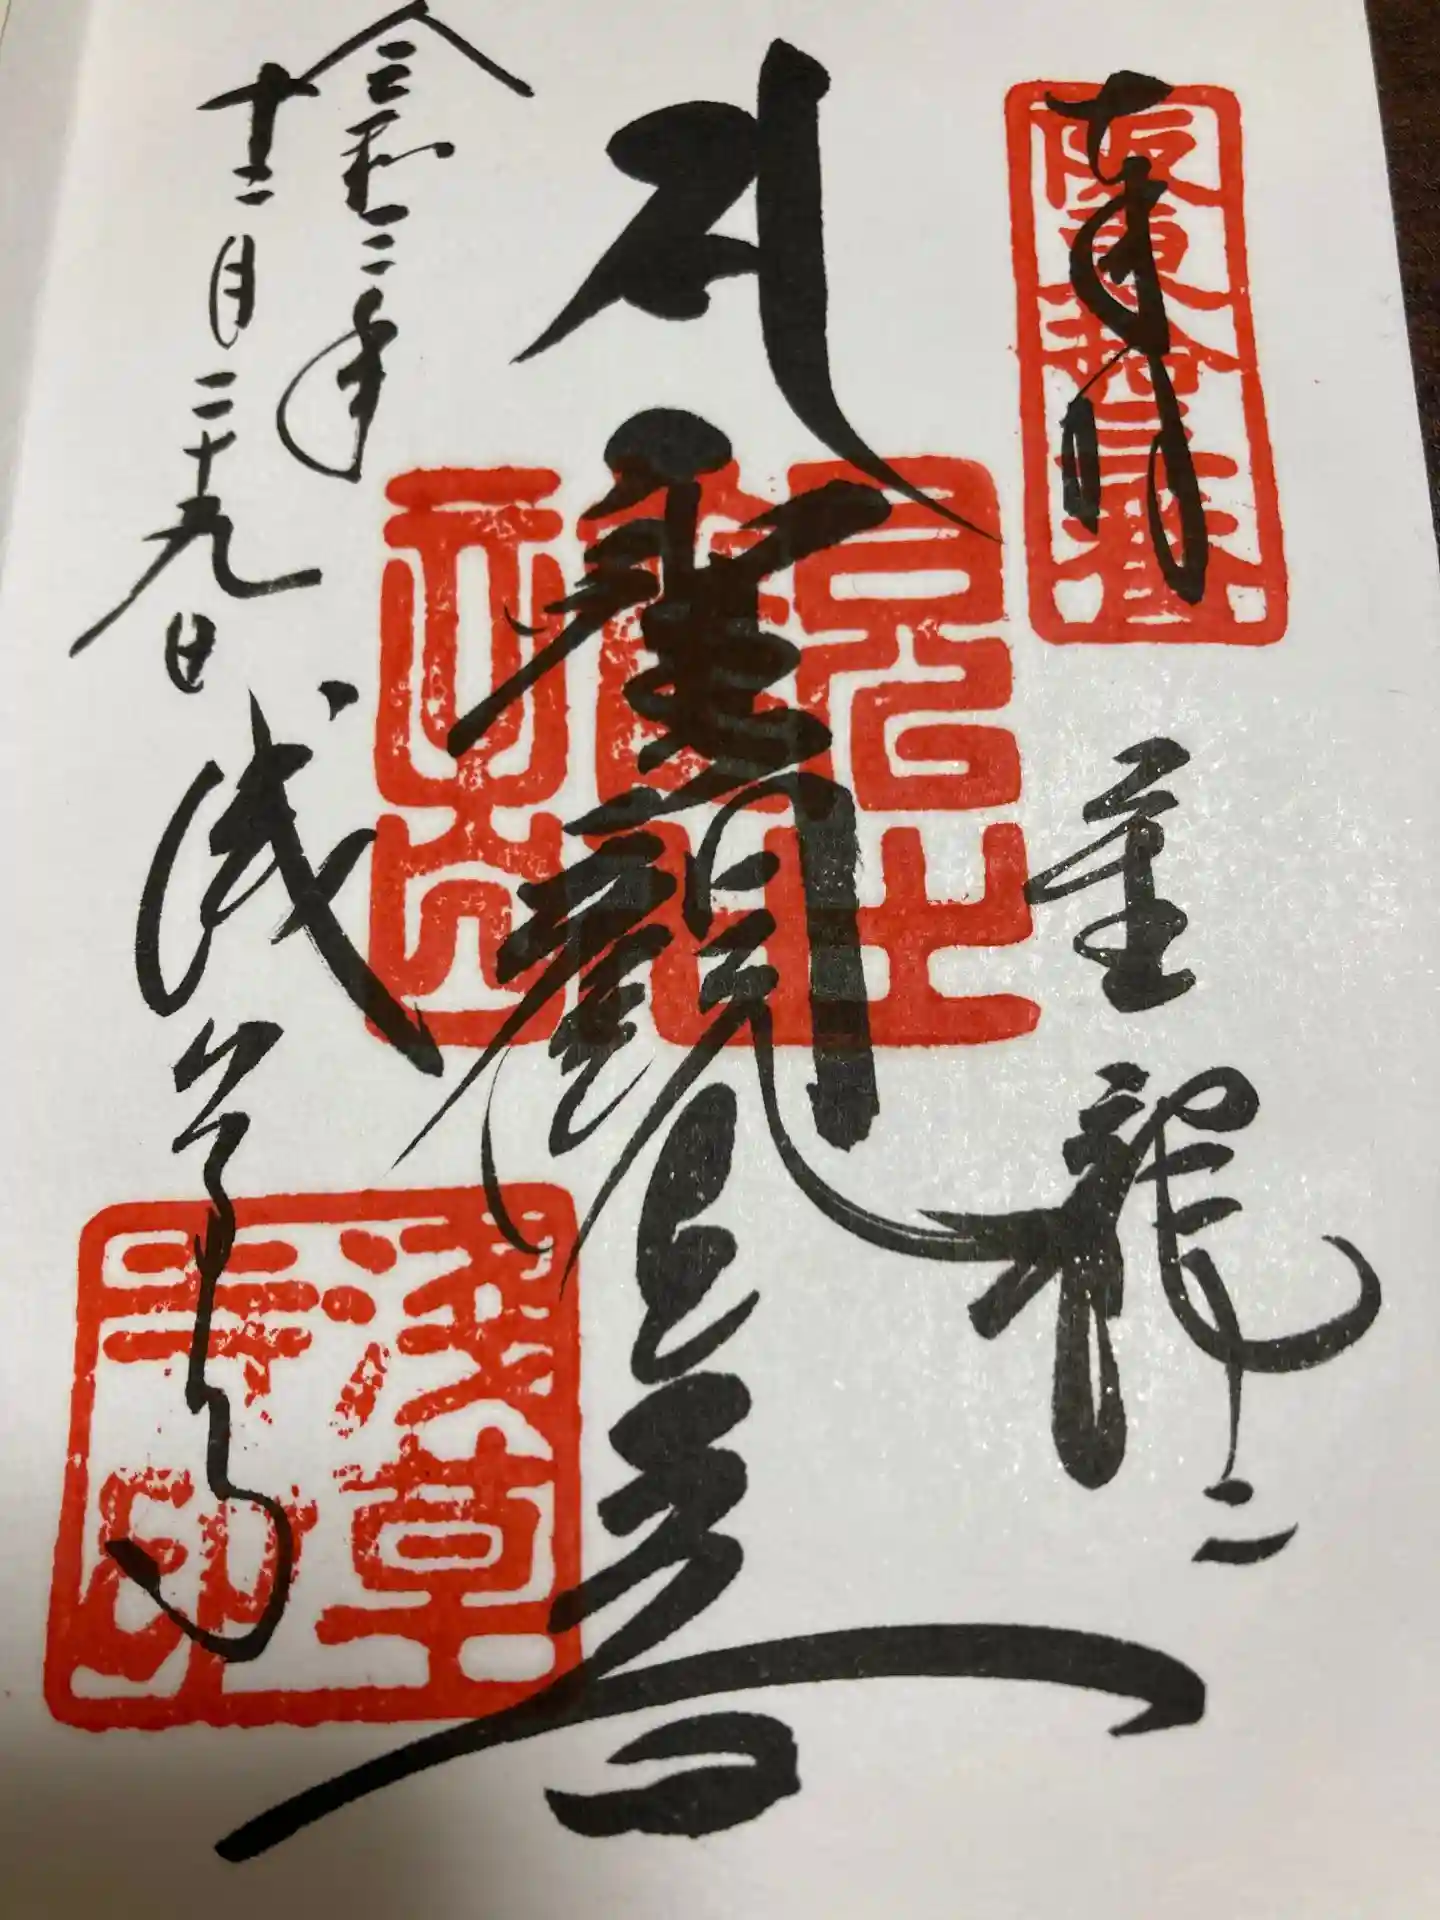 奉拝
阪東拾三番
金龍山
聖觀世音
令和二年
十二月二十九日
浅草寺
淺草寺印